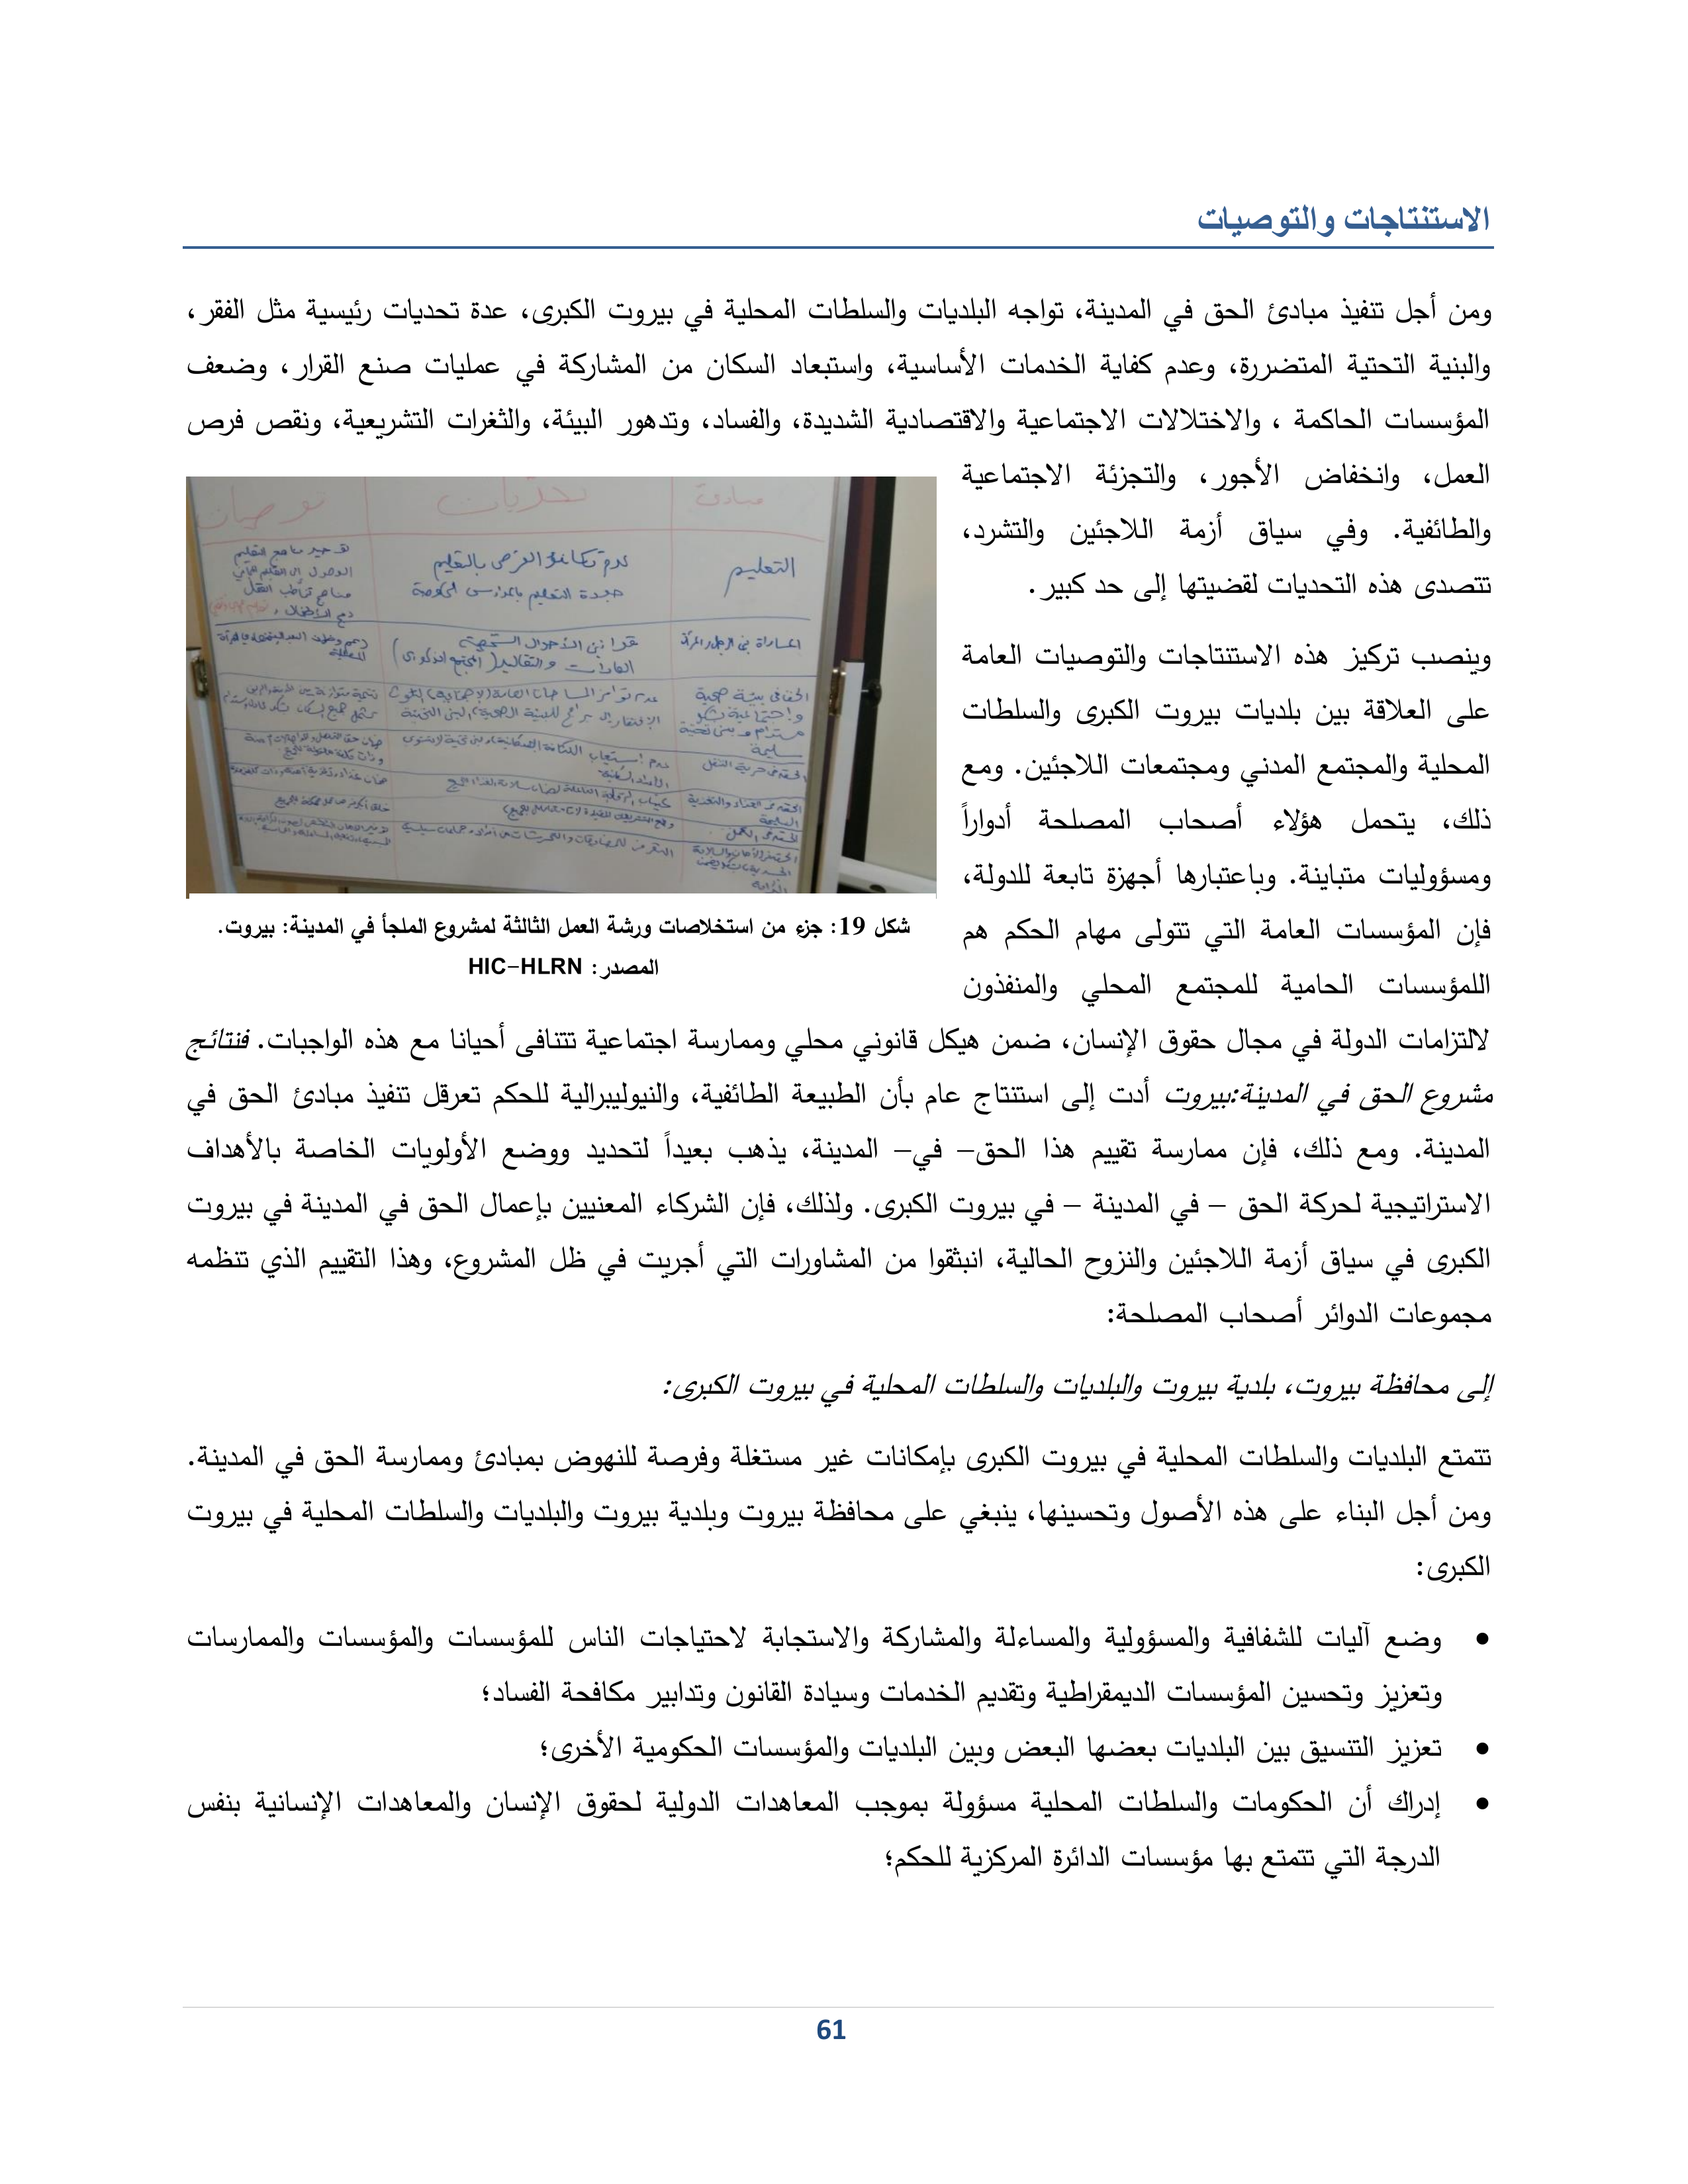 الاستنتاجات والتوصيات
ومن أجل تنفيذ مبادئ الحق في المدينة، تواجه البلديات والسلطات المحلية في بيروت الكبرى، عدة تحديات رئيسية مثل الفقر،
والبنية التحتية المتضررة، وعدم كفاية الخدمات الأساسية، واستبعاد السكان من المشاركة في عمليات صنع القرار، وضعف
المؤسسات الحاكمة ، والاختلالات الاجتماعية والاقتصادية الشديدة، والفساد، وتدهور البيئة، والثغرات التشريعية، ونقص فرص
العمل، وانخفاض الأجور، والتجزئة الاجتماعية
والطائفية. وفي سياق أزمة اللاجئين والتشرد،
تتصدى هذه التحديات لقضيتها إلى حد كبير.
وينصب تركيز هذه الاستنتاجات والتوصيات العامة
على العلاقة بين بلديات بيروت الكبرى والسلطات
المحلية والمجتمع المدني ومجتمعات اللاجئين. ومع
ذلك، يتحمل هؤلاء أصحاب المصلحة أدواراً
ومسؤوليات متباينة. وباعتبارها أجهزة تابعة للدولة،
فإن المؤسسات العامة التي تتولى مهام الحكم هم
اللمؤسسات الحامية للمجتمع المحلي والمنفذون
مبادئ تحديات توصيات
التعليم
عدم تكافؤ الفرص بالتعليم
جودة التعليم بالمدارس الحكومية
المساواة بين الرجل والمرأة
قوانين الأحوال الشخصية
العادات والتقاليد (المجتمع الذكوري)
الحق في بيئة صحية
سليمة
الحق في حرية التنقل
الحق في الغذاء والتغذية
السليمة
الحق في العمل
شكل 19: جزء من استخلاصات ورشة العمل الثالثة لمشروع الملجأ في المدينة: بيروت.
المصدر: HIC-HLRN
لالتزامات الدولة في مجال حقوق الإنسان، ضمن هيكل قانوني محلي وممارسة اجتماعية تتنافى أحيانا مع هذه الواجبات. فنتائج
مشروع الحق في المدينة:بيروت أدت إلى استنتاج عام بأن الطبيعة الطائفية، والنيوليبرالية للحكم تعرقل تنفيذ مبادئ الحق في
المدينة. ومع ذلك، فإن ممارسة تقييم هذا الحق– في– المدينة، يذهب بعيداً لتحديد ووضع الأولويات الخاصة بالأهداف
الاستراتيجية لحركة الحق – في المدينة – في بيروت الكبرى. ولذلك، فإن الشركاء المعنيين بإعمال الحق في المدينة في بيروت
الكبرى في سياق أزمة اللاجئين والنزوح الحالية، انبثقوا من المشاورات التي أجريت في ظل المشروع، وهذا التقييم الذي تنظمه
مجموعات الدوائر أصحاب المصلحة:
إلى محافظة بيروت، بلدية بيروت والبلديات والسلطات المحلية في بيروت الكبرى:
تتمتع البلديات والسلطات المحلية في بيروت الكبرى بإمكانات غير مستغلة وفرصة للنهوض بمبادئ وممارسة الحق في المدينة.
ومن أجل البناء على هذه الأصول وتحسينها، ينبغي على محافظة بيروت وبلدية بيروت والبلديات والسلطات المحلية في بيروت
الكبرى:
• وضع آليات للشفافية والمسؤولية والمساءلة والمشاركة والاستجابة لاحتياجات الناس للمؤسسات والمؤسسات والممارسات
وتعزيز وتحسين المؤسسات الديمقراطية وتقديم الخدمات وسيادة القانون وتدابير مكافحة الفساد؛
• تعزيز التنسيق بين البلديات بعضها البعض وبين البلديات والمؤسسات الحكومية الأخرى؛
• إدراك أن الحكومات والسلطات المحلية مسؤولة بموجب المعاهدات الدولية لحقوق الإنسان والمعاهدات الإنسانية بنفس
الدرجة التي تتمتع بها مؤسسات الدائرة المركزية للحكم؛
61